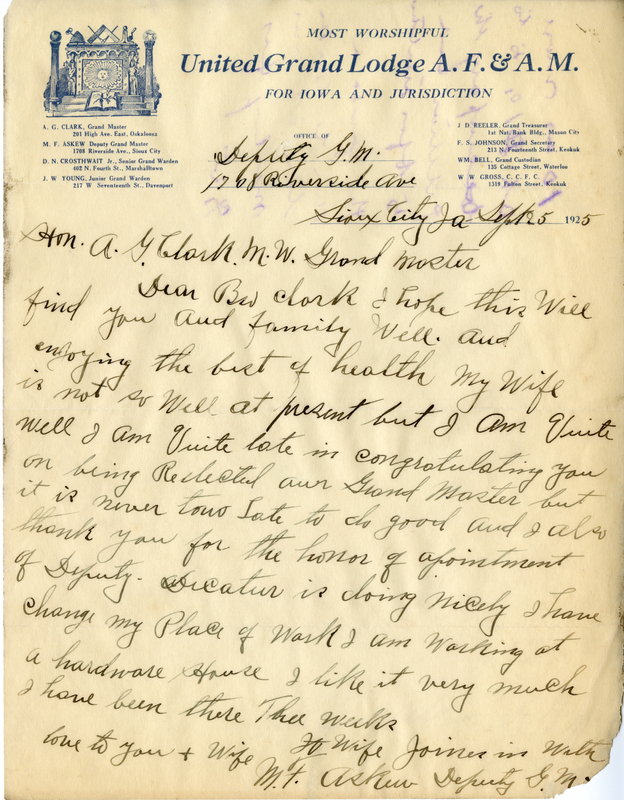 MOST WORSHIPFUL
United Grand Lodge A. F. & A. M.
FOR IOWA AND JURISDICTION
A. G. CLARK, Grand Master
201 High Ave. East, Oskaloosa
M. F. ASKEW Deputy Grand Master
1708 Riverside Ave., Sioux City
D. N. CROSTHWAIT Jr., Senior Grand Warden
402 N. Fourth St., Marshalltown
J. W. YOUNG, Junior Grand Warden
217 W. Seventeenth St., Davenport
J D. REELER, Grand Treasurer
1st Nat. Bank Bldg., Mason City
F. S. JOHNSON, Grand Secretary
213 N. Fourteenth Street, Keokuk
WM. BELL, Grand Custodian
135 Cottage Street, Waterloo
W W GROSS, C. C. F. C.
1519 Fulton Street, Keokuk
OFFICE OF
Deputy G. M.
1708 Riverside Ave
Sioux City Ia Sept 25 1925
Hon. A. G. Clark. M. W. Grand Master
Dear Bro Clark I hope this Will
find you and family Well. and
enjoying the best of health My Wife
is not so Well at present but I am Quite
well I am Quite late in congratulating you
on being Reelected our Grand Master but
it is never tow late to do good and I also
thank you for the honor of apointment
of Deputy. Decatur is doing nicely I have
change my Place of Work I am Working at
a hardware House I like it very much
I have been there Thee weeks
Wife Joines in With
love to you + Wife
M. F. Askew Deputy G. M.